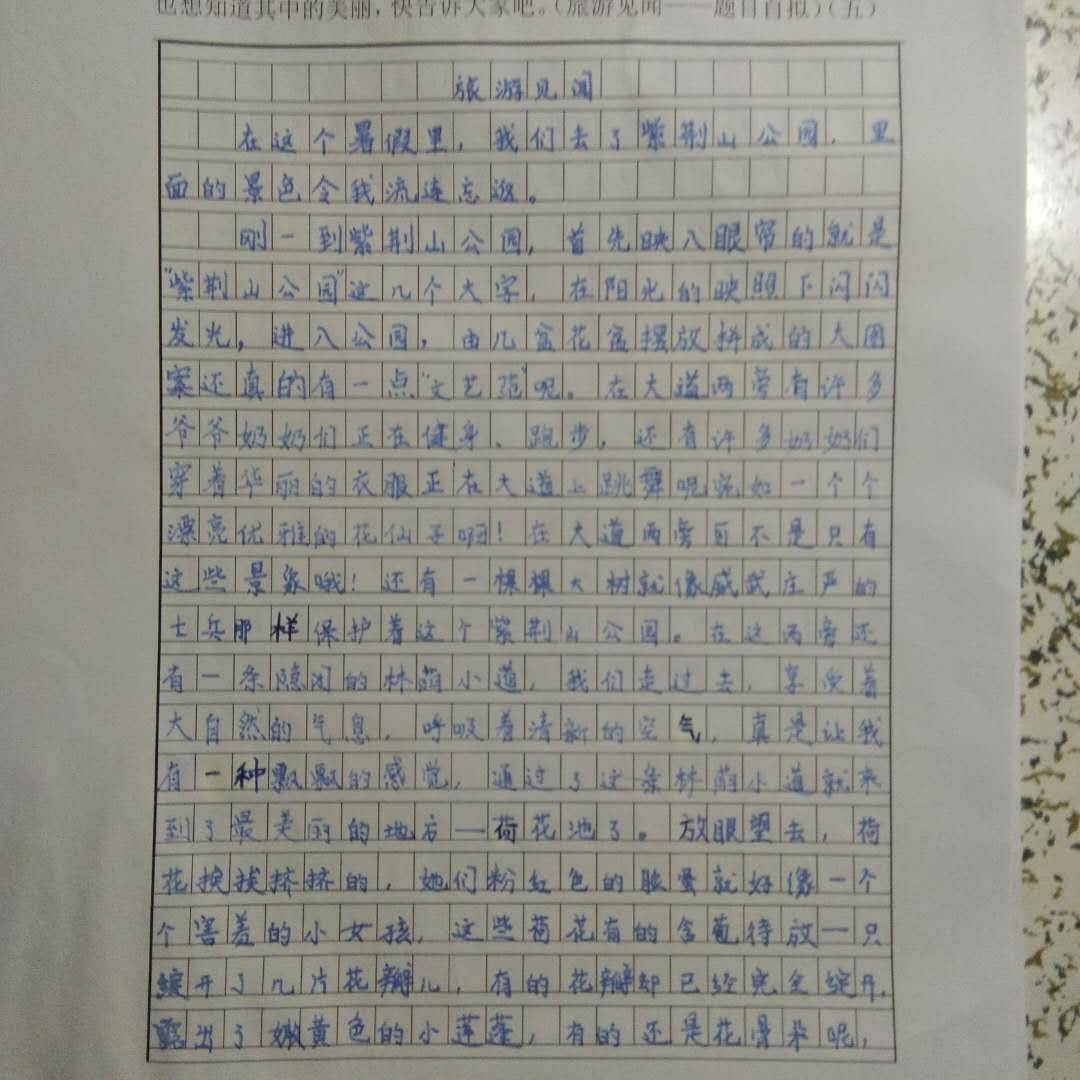 也想知道其中的美丽，快告诉大家吧。（旅游见闻——题目自拟）（五）
旅游见闻
在这个暑假里，我们去了紫荆山公园，里
面的景色令我流连忘返。
刚一到紫荆山公园，首先映入眼帘的就是
“紫荆山公园”这几个大字，在阳光的映照下闪闪
发光，进入公园，由几盆花盆摆放拼成的大图
案还真的有一点“文艺范”呢。在大道两旁有许多
爷爷奶奶们正在健身、跑步，还有许多奶奶们
穿着华丽的衣服正在大道上跳舞呢宛如一个个
漂亮优雅的花仙子啊！在大道两旁可不是只有
这些景象哦！还有一棵棵大树就像威武庄严的
士兵那样保护着这个紫荆山公园。在这两旁还
有一条隐闭的林荫小道，我们走过去，享受着
大自然的气息，呼吸着清新的空气，真是让我
有一种飘飘的感觉，通过了这条林荫小道就来
到了最美丽的地方—荷花池了。放眼望去，荷
花挨挨挤挤的，她们粉红色的脸蛋就好像一个
个害羞的小女孩，这些荷花有的含苞待放一只
绽开了几片花瓣儿，有的花瓣却已经完全绽开，
露出了嫩黄色的小莲蓬，有的还是花骨朵呢，